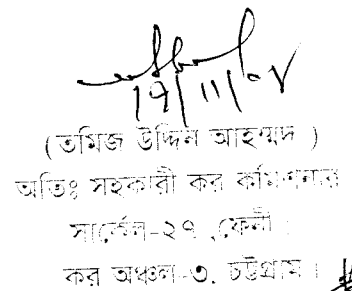 ১৭/১১/০৮
(তমিজ উদ্দিন আহম্মদ )
অতিঃ সহকারী কর কমিশনার
সার্কেল-২৭ ,ফেনী।
কর অঞ্চল-৩, চট্টগ্রাম।